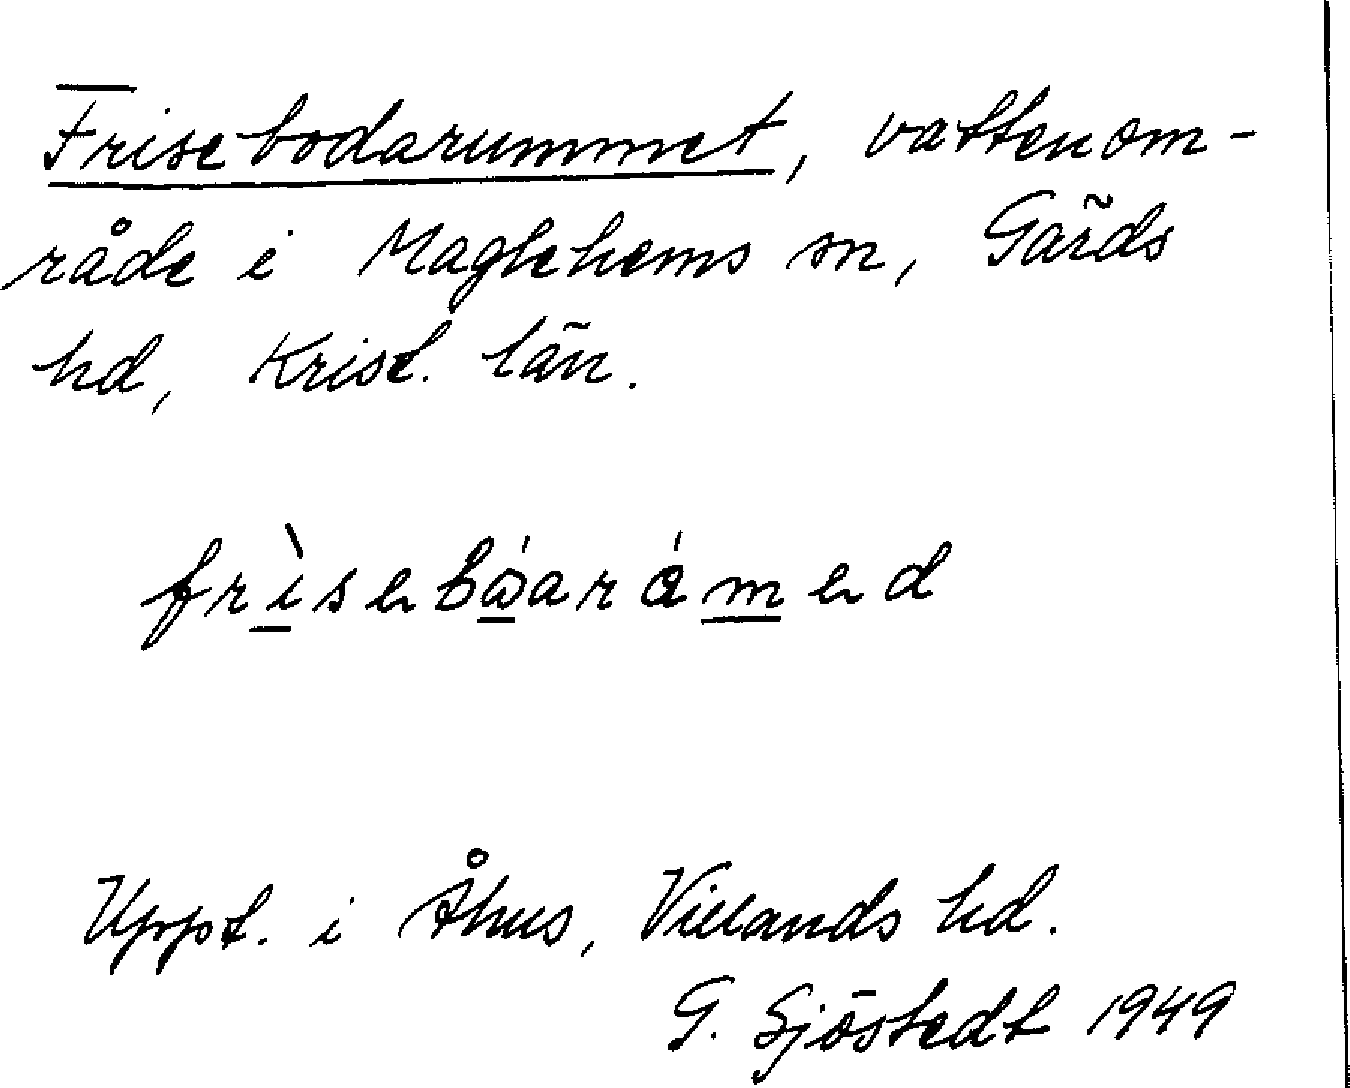 Frisebodarummet, vattenom-
råde i Maglehems sn, Gärds
hd, Krist. län.
frìsebåarámed
Uppt. i Åhus, Villands hd.
G. Sjöstedt 1949